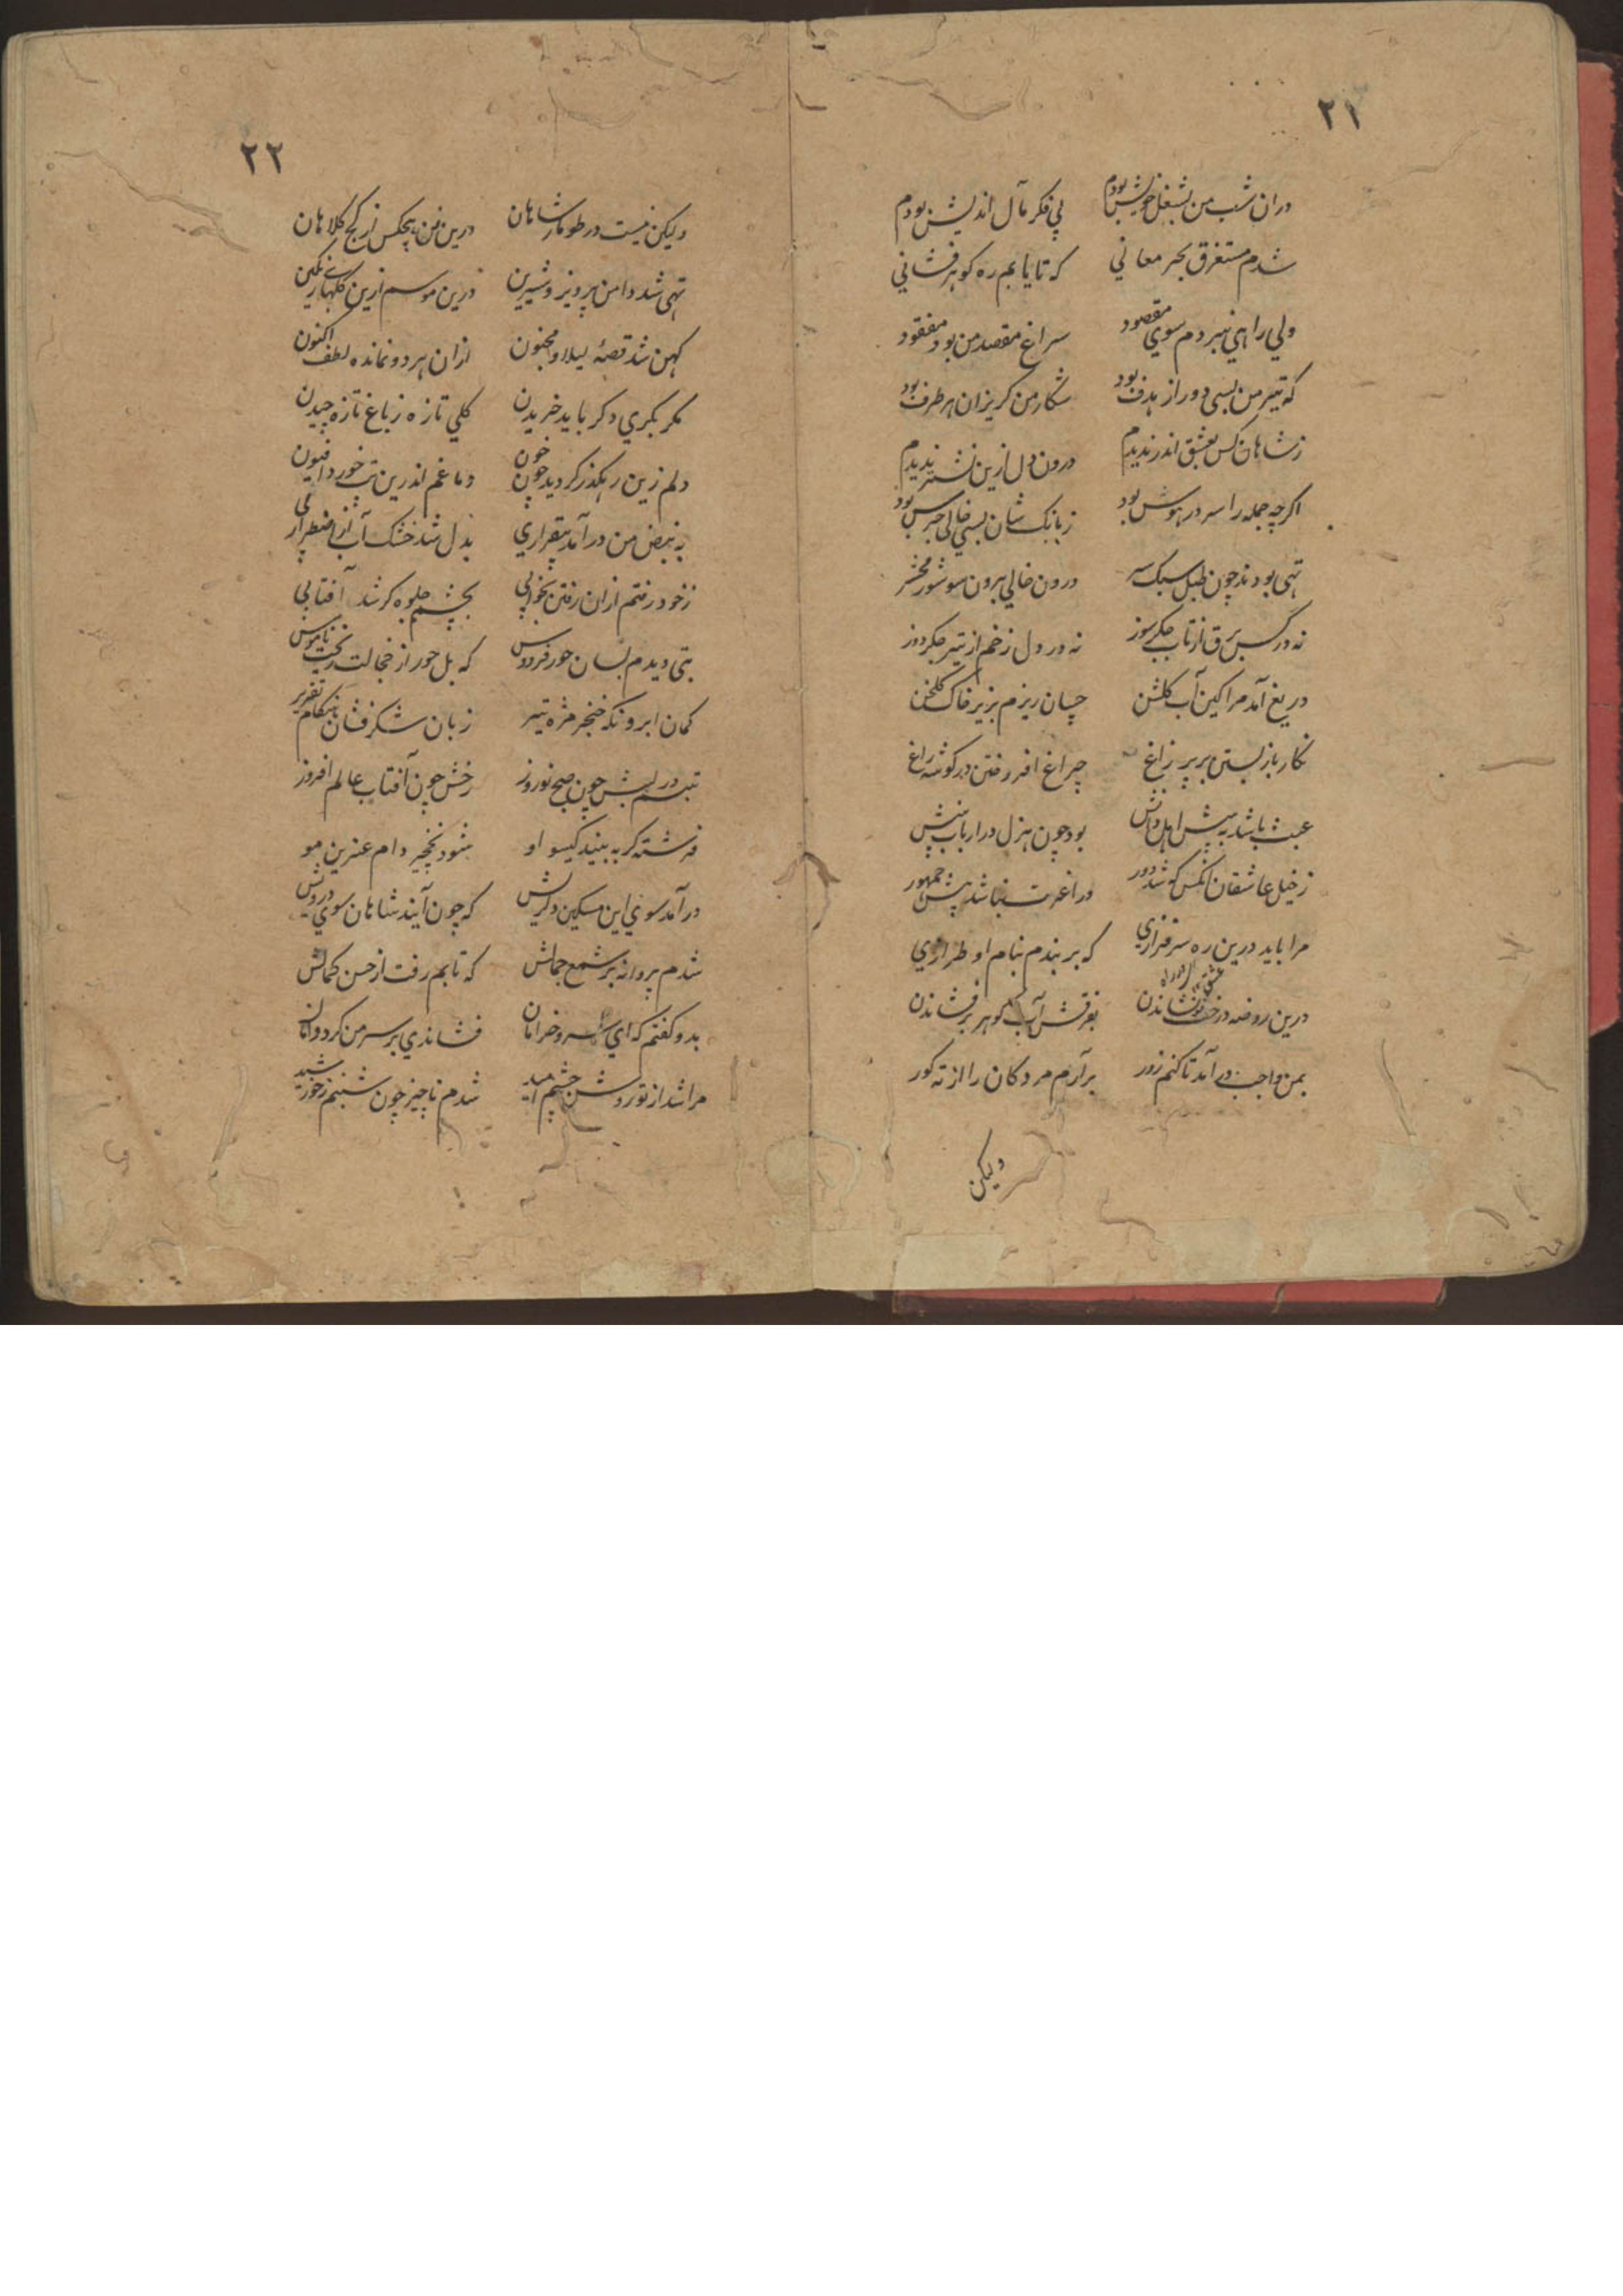 ۲۱
دران شب من بشغل خویش بودم پی فکر مآل اندیش بودم
شدم مستغرق بحر معانی که تا یابم ره کوهر فشانی
ولی راهی نبردم سوی مقصود سراغ مقصد من بود مفقود
که تیر من بسی دور از هدف بود شکار من کریزان هر طرف بود
ز شاهان کس بعشق اندر ندیدم درون دل ازین نشتر ندیدم
اکرچه جمله را سر در هوس بود ز بانک شان بسی خالی جرس بود
تهی بودند چون طبل سبک سر درون خالی برون سو شور محشر
نه در کس برق از تاب جکر سوز نه در دل زخم از تیر جکر دوز
دریغ آمد مرا کین آب کلشن چسان ریزم بزیر خاک کلخن
نکار باز بستن بر پر زاغ چراغ افروختن در کوشه راغ
عبث باشد به پیش اهل دانش بود چون هزل در ارباب بینش
ز خیل عاشقان آنکس که شد دور ورا عزت نباشد پیش جمهور
مرا باید درین ره سرفرازی که بر بندم بنام او طرازی
درین روضه درخت نو نشاندن بفرقش آب کوهر بر فشاندن
بمن واجب در آمد تا کنم زور بر آرم مردکان را از ته کور
ولیکن
۲۲
ولیکن نیست در طومار شاهان درین فن هیچکس از کج کلاهان
تهی شد دامن پرویز و شیرین درین موسم ازین کلهای رنکین
کهن شد قصهٔ لیلا و مجنون ازان هر دو نمانده لطف اکنون
مکر بکری دکر باید خریدن کلی تازه ز باغ تازه چیدن
دلم زین رهکذر کردید چون خون دماغم اندرین تب خورد افیون
به نبض من در آمد بیقراری بدل شد خشک آب از اضطراری
ز خود رفتم ازان رفتن بخوابی بچشمم جلوه کر شد آفتابی
بتی دیدم بسان حور فردوس که بل حور از خجالت ریخت ناموس
کمان ابرو نکه خنجر مژه تیر زبان شکر فشان هنکام تقریر
تبسم در لبش چون صبح نوروز رخش چون آفتاب عالم افروز
فرشته کر به بیند کیسو او شود نخچیر دام عنبرین مو
در آمد سوی این مسکین دلریش که چون آیند شاهان سوی درویش
شدم پروانه بر شمع جمالش که تابم رفت از حسن کمالش
بدو کفتم که ای سرو خرامان فشاندی بر سر من کرد دامان
مرا شد از تو روشن چشم امید شدم ناچیز چون شبنم ز خورشید